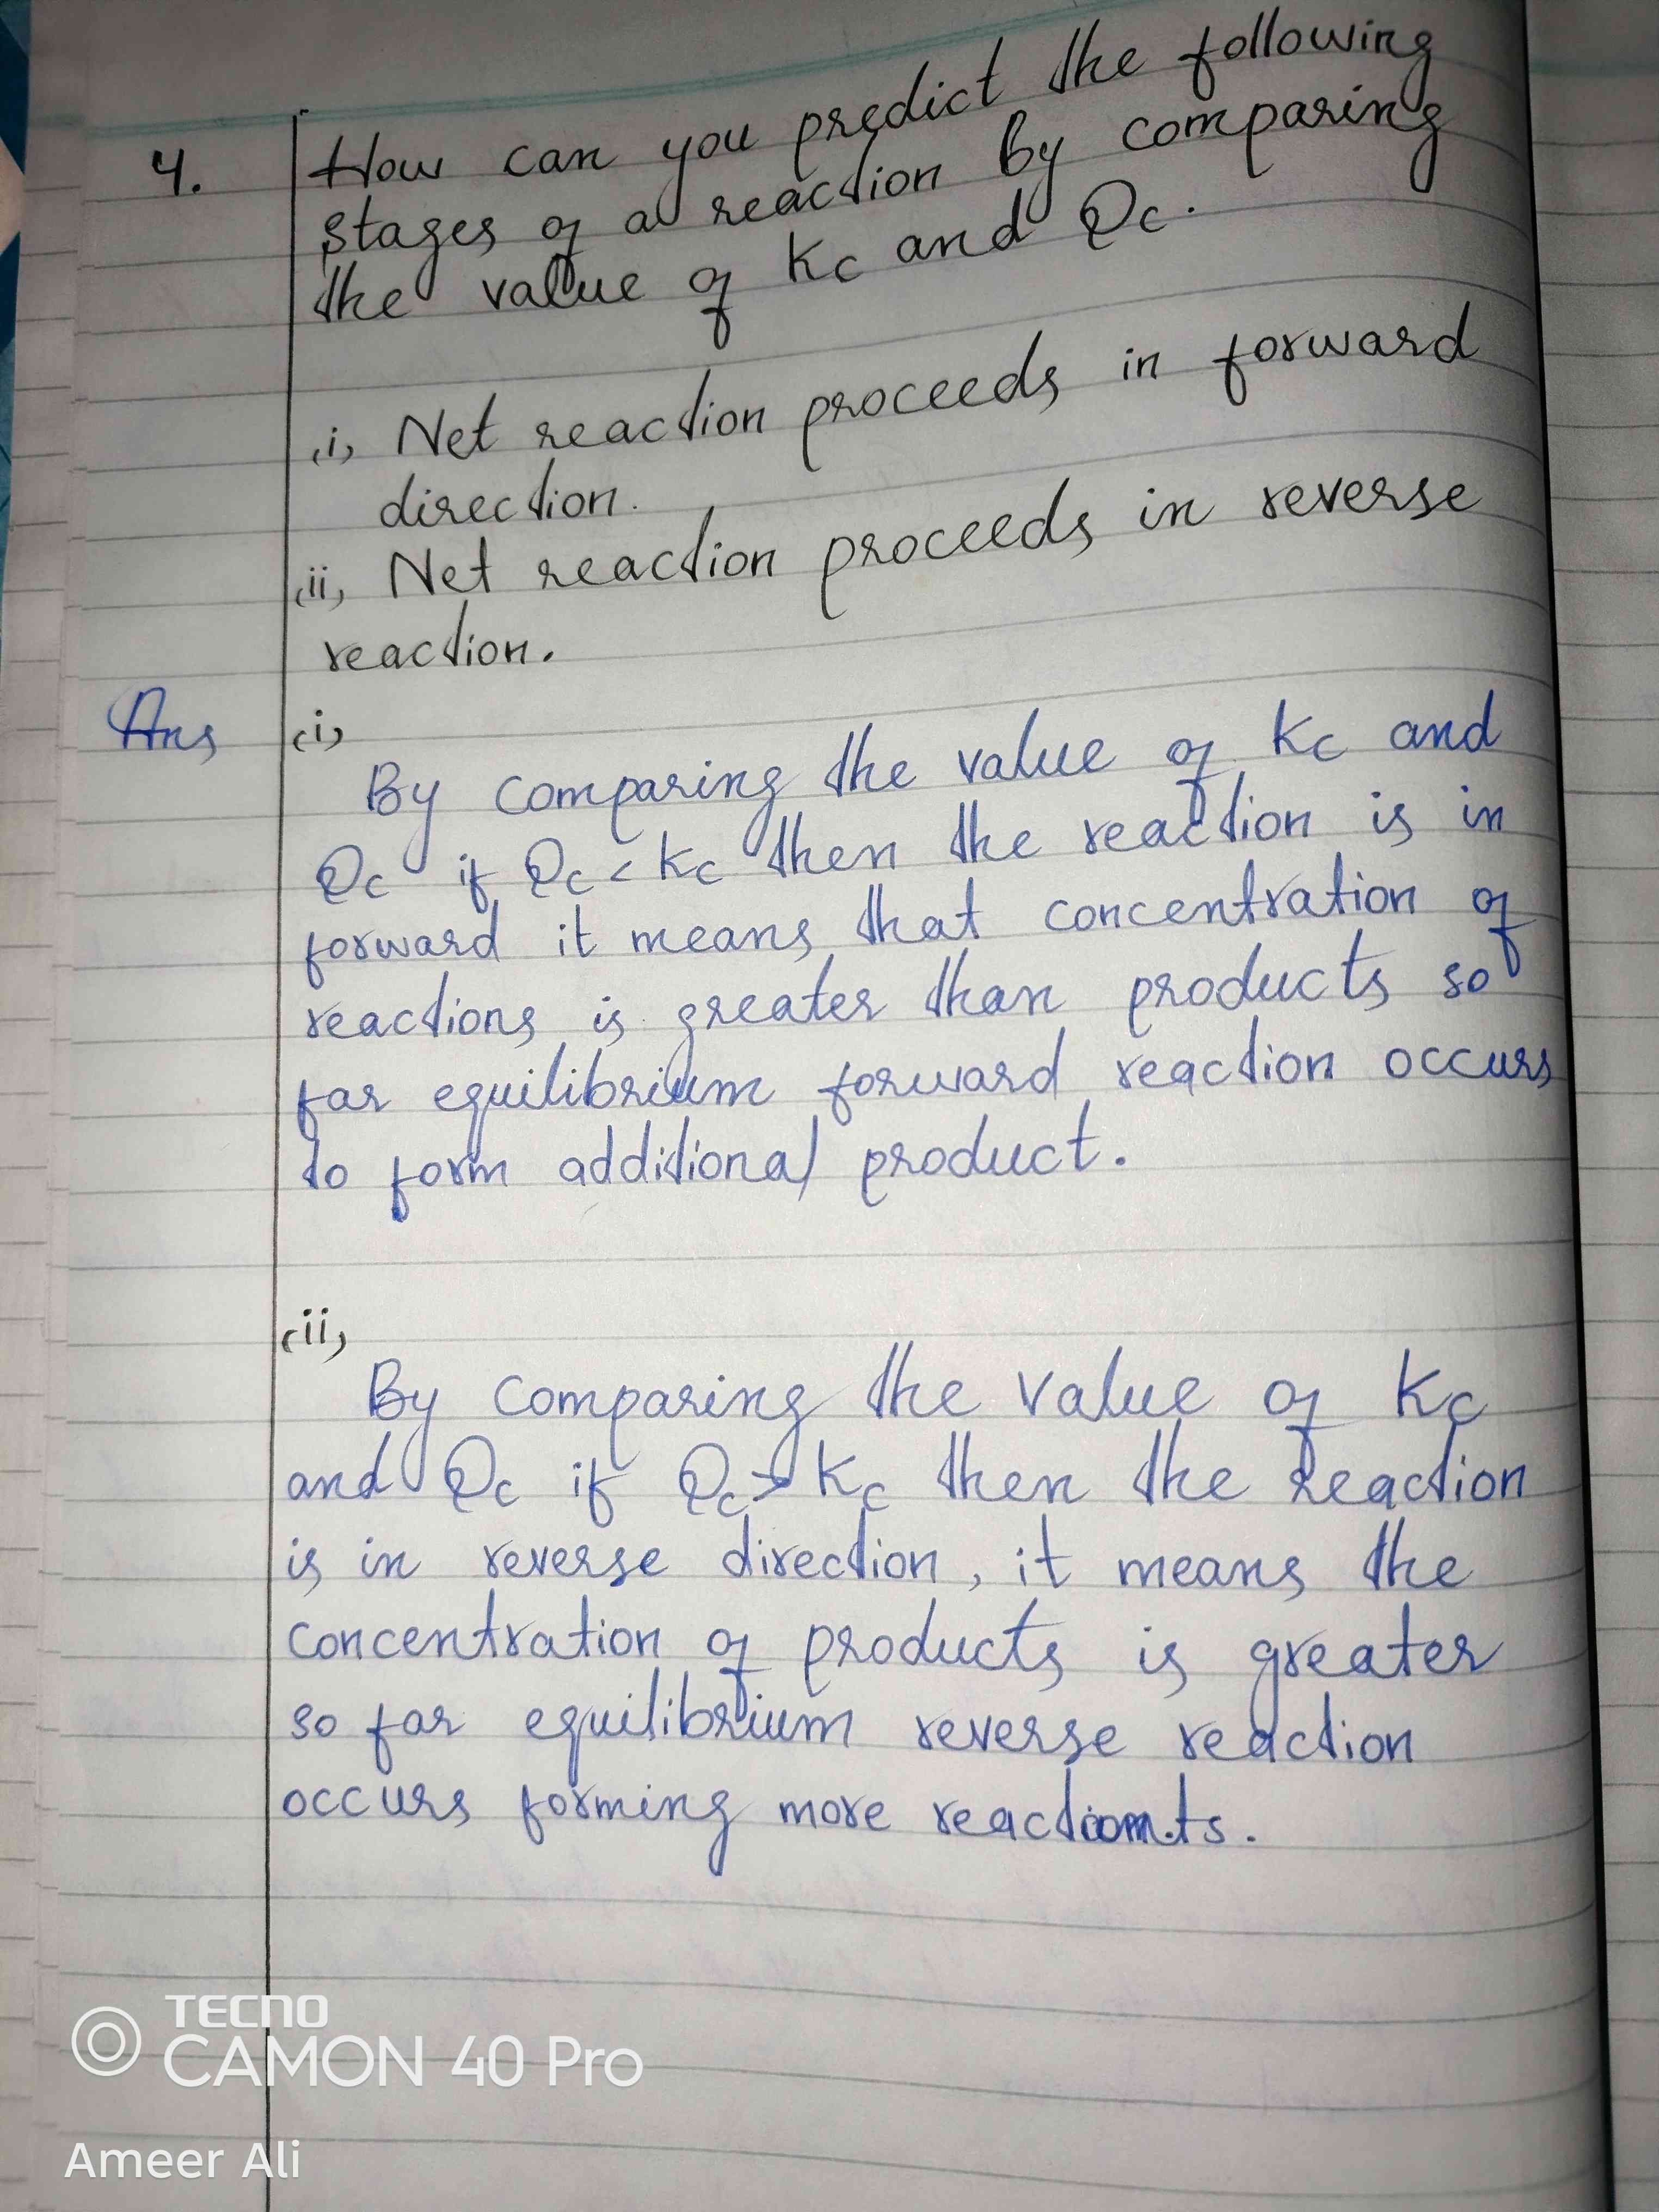 4. How can you predict the following
stages of a reaction by comparing
the value of Kc and Qc.
(i) Net reaction proceeds in forward
direction.
(ii) Net reaction proceeds in reverse
reaction.
Ans (i)
By comparing the value of Kc and
Qc if Qc < Kc then the reaction is in
forward it means that concentration of
reactions is greater than products so
far equilibrium forward reaction occurs
to form additional product.
(ii)
By comparing the value of Kc
and Qc if Qc > Kc then the reaction
is in reverse direction, it means the
concentration of products is greater
so far equilibrium reverse reaction
occurs forming more
TECNO
CAMON 40 Pro
Ameer Ali